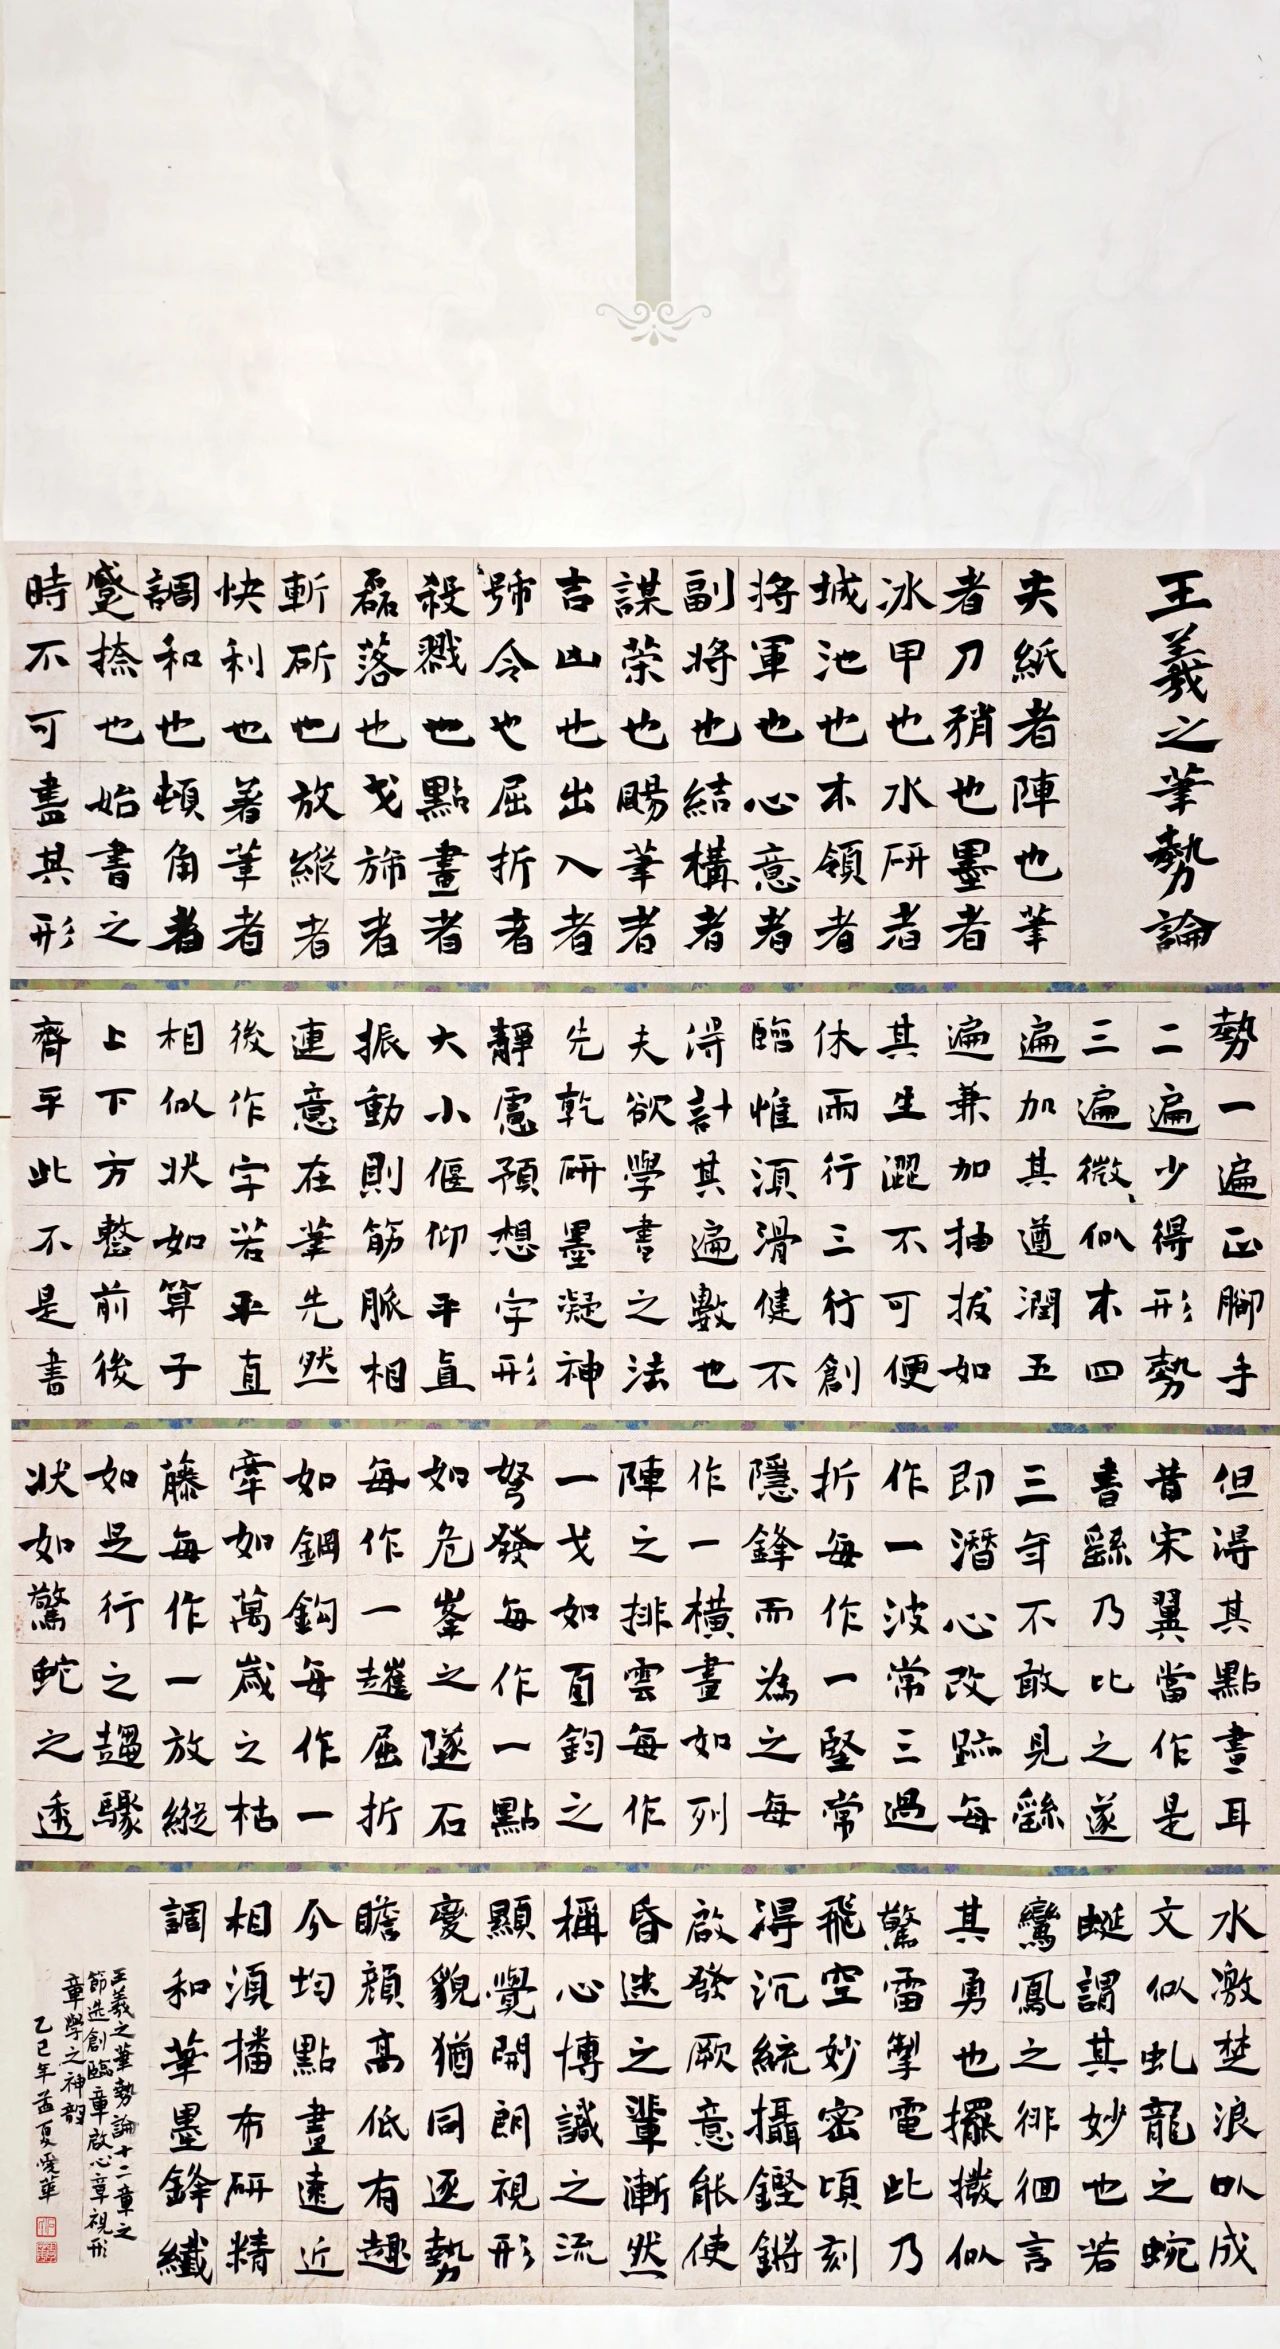 王羲之筆勢論
夫紙者陣也筆
者刀矟也墨者
冰甲也水研者
城池也本領者
將軍也心意者
副將也結構者
謀策也颺筆者
吉凶也出入者
號令也屈折者
殺戮也點畫者
磊落也戈旆者
斬斫也放縱者
快利也著筆者
調和也頓角者
蹙捺也始書之
時不可盡其形
勢一遍正腳手
二遍少得形勢
三遍微、似本四
遍加其遒潤五
遍兼加抽拔如
其生澀不可便
休兩行三行創
臨惟須滑健不
得計其遍數也
夫欲學書之法
先乾研墨凝神
靜慮預想字形
大小偃仰平直
振動則筋脈相
連意在筆先然
後作字若平直
相似狀如算子
上下方整前後
齊平此不是書
但得其點畫耳
昔宋翼當作是
書繇乃叱之遂
三年不敢見繇
即潛心改跡每
作一波常三過
折每作一豎常
隱鋒而為之每
作一橫畫如列
陣之排雲每作
一戈如百鈞之
弩發每作一點
如危峯之墜石
每作一趯屈折
如鋼鉤每作一
牽如萬歲之枯
藤每作一放縱
如足行之趨驟
狀如驚蛇之透
水激楚浪以成
文似虬龍之蜿
蜒謂其妙也若
鸞鳳之徘徊言
其勇也擺撥似
驚雷掣電此乃
飛空妙密頃刻
得沉統攝鏗鏘
啟發厥意能使
昏迷之輩漸然
稱心博識之流
顯覺開朗視形
變貌猶同逐勢
瞻顏高低有趣
分均點畫遠近
相須播布研精
調和筆墨鋒纖
王羲之筆勢論十二章之
節选創臨章啟心章視形
章學之神韵
乙巳年孟夏愛華